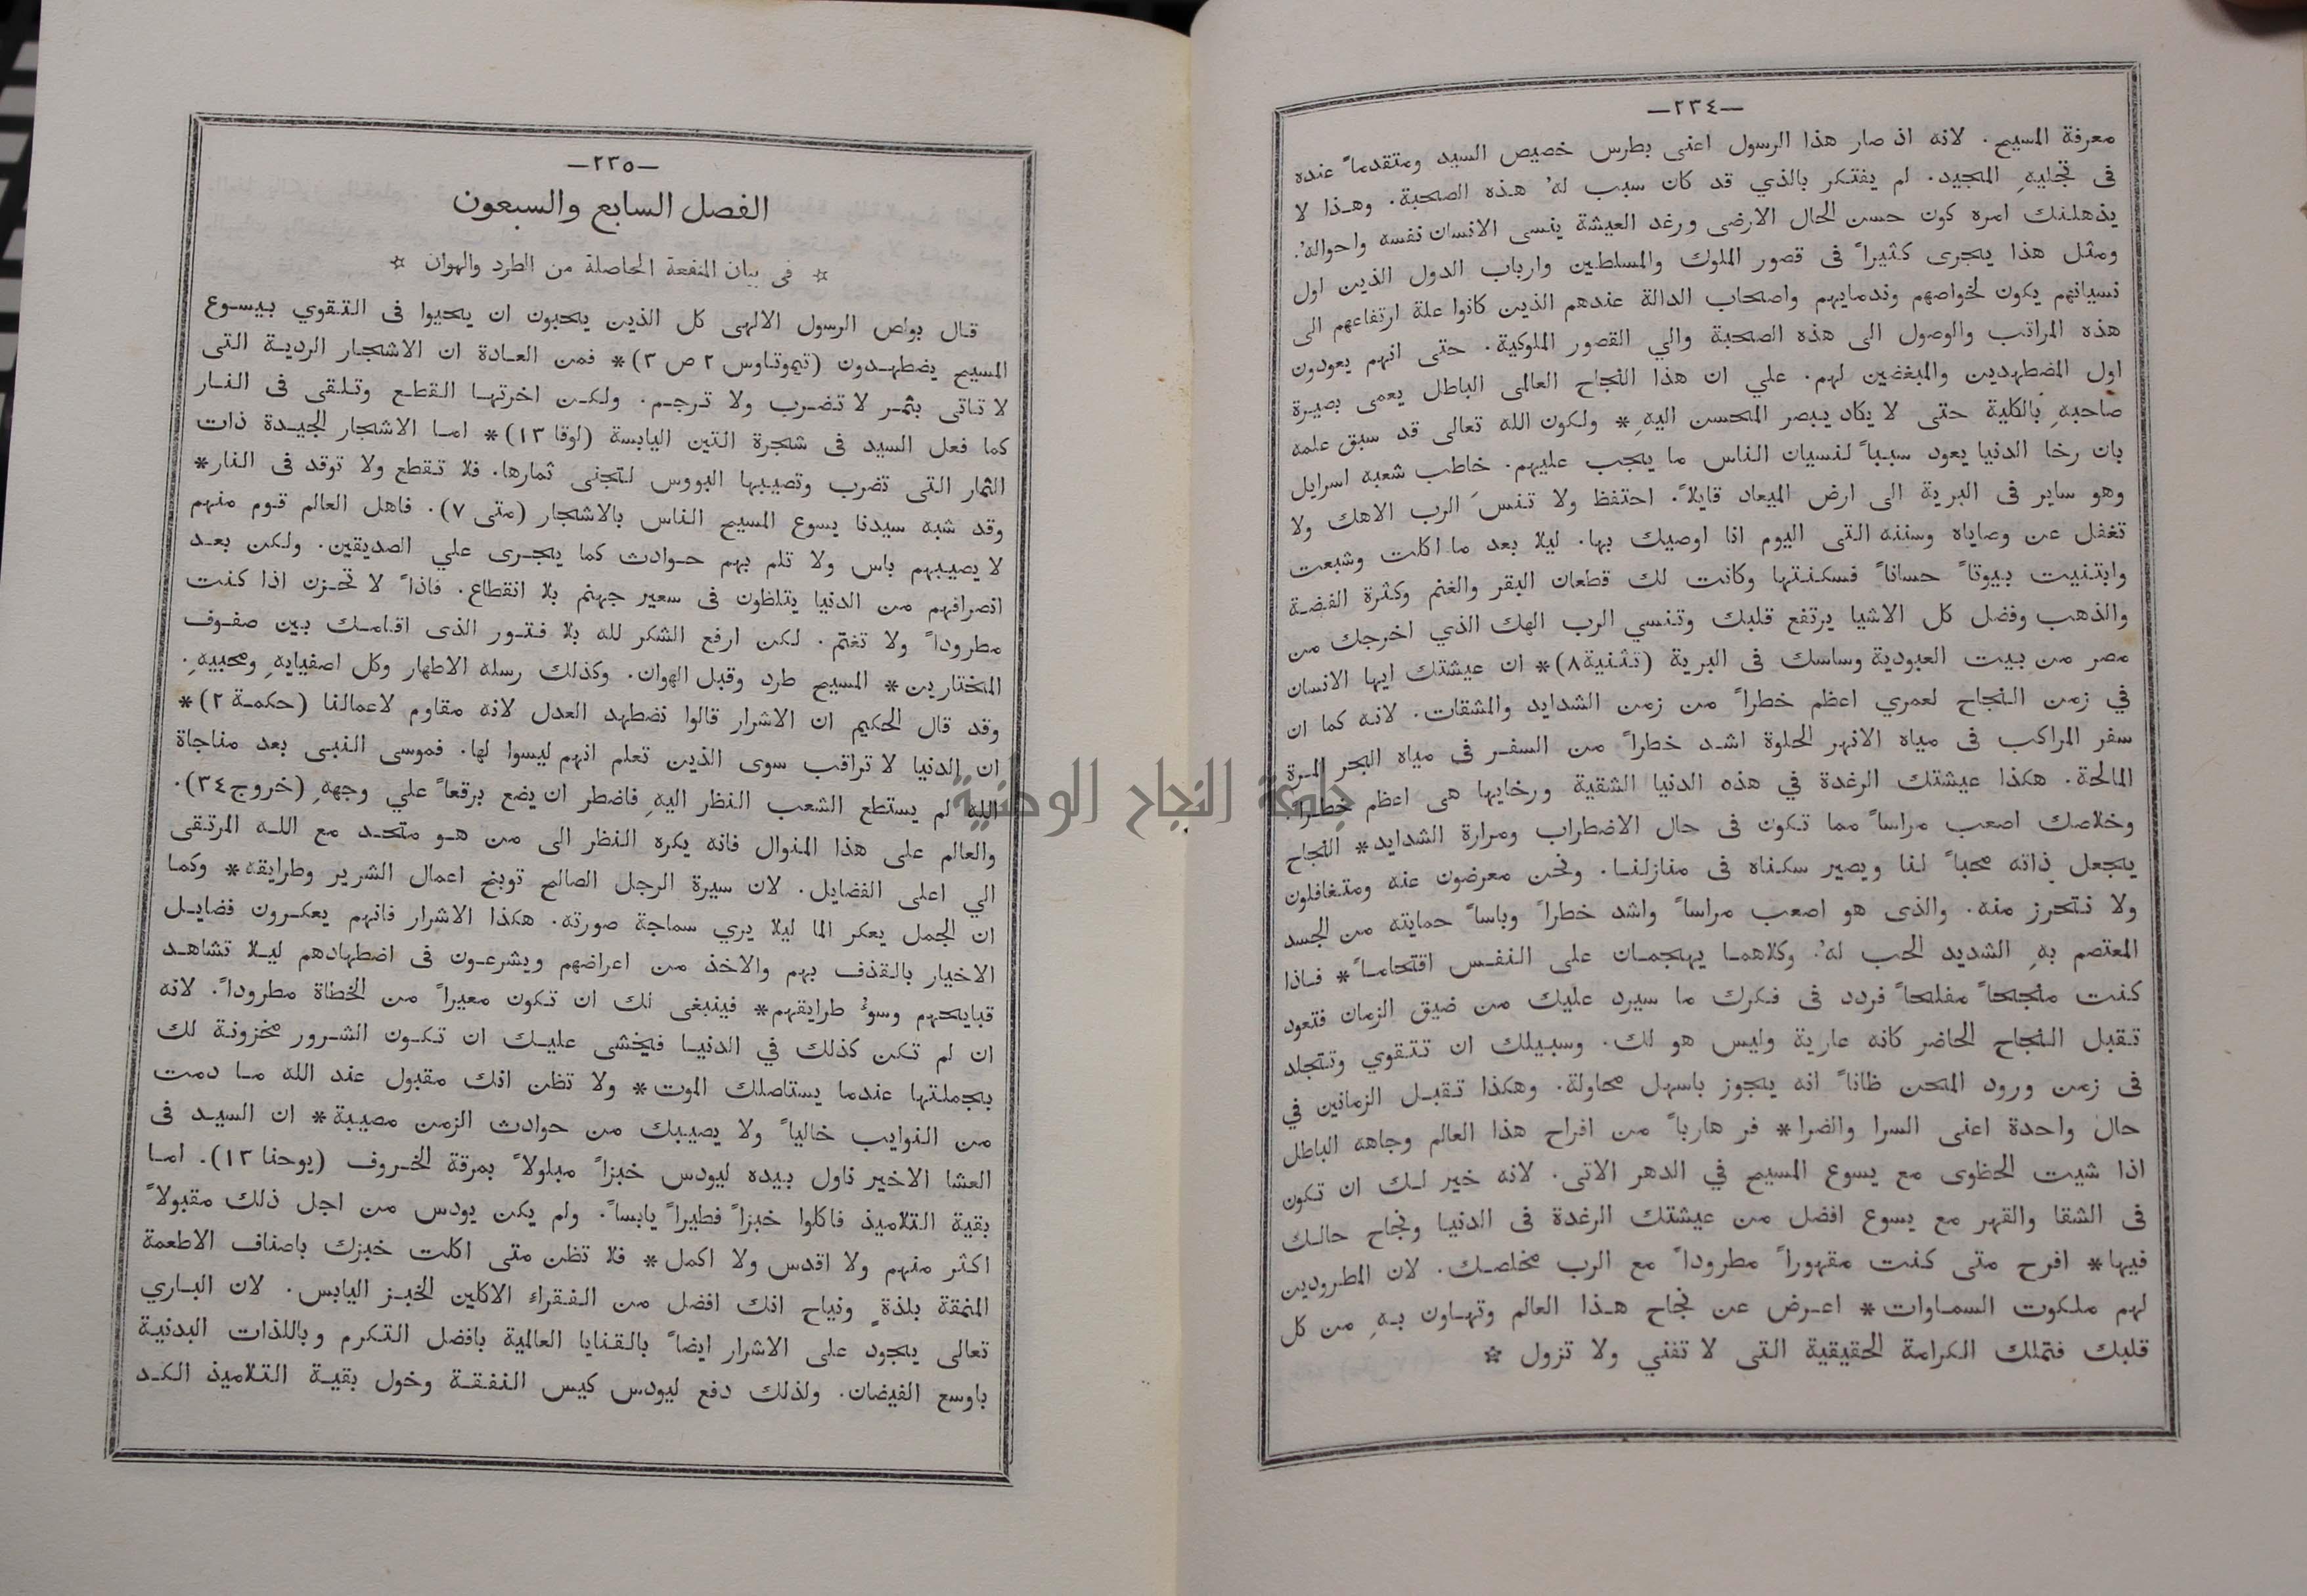 —٢٣٤—
معرفة المسيح. لانه اذ صار هذا الرسول اعنى بطرس خصيص السيد ومتقدماً عنده
فى تجليهِ المجيد. لم يفتكر بالذي قد كان سبب لهُ هذه الصحبة. وهذا لا
يذهلنك امره كون حسن الحال الارضى ورغد العيشة ينسى الانسان نفسه واحوالهُ.
ومثل هذا يجرى كثيراً فى قصور الملوك والمسلطين وارباب الدول الذين اول
نسيانهم يكون لخواصهم وندمايهم واصحاب الدالة عندهم الذين كانوا علة ارتفاعهم الى
هذه المراتب والوصول الى هذه الصحبة والي القصور الملوكية. حتى انهم يعودون
اول المضطهدين والمبغضين لهم. علي ان هذا النجاح العالمى الباطل يعمى بصيرة
صاحبهِ بالكلية حتى لا يكاد يبصر المحسن اليهِ * ولكون الله تعالى قد سبق علمه
بان رخا الدنيا يعود سبباً لنسيان الناس ما يجب عليهم. خاطب شعبه اسرايل
وهو ساير فى البرية الى ارض الميعاد قايلاً. احتفظ ولا تنسَ الرب الاهك ولا
تغفل عن وصاياه وسننه التى اليوم انا اوصيك بها. ليلا بعد ما اكلت وشبعت
وابتنيت بيوتاً حساناً فسكنتها وكانت لك قطعان البقر والغنم وكثرة الفضة
والذهب وفضل كل الاشيا يرتفع قلبك وتنسي الرب الهك الذي اخرجك من
مصر من بيت العبودية وساسك فى البرية (تثنية٨)* ان عيشتك ايها الانسان
في زمن النجاح لعمري اعظم خطراً من زمن الشدايد والمشقات. لانه كما ان
سفر المراكب فى مياه الانهر الحلوة اشد خطراً من السفر فى مياه البحر المرة
المالحة. هكذا عيشتك الرغدة في هذه الدنيا الشقية ورخايها هى اعظم خطراً
وخلاصك اصعب مراساً مما تكون فى حال الاضطراب ومرارة الشدايد* النجاح
يجعل ذاته محباً لنا ويصير سكناه فى منازلنا. ونحن معرضون عنه ومتغافلون
ولا نتحرز منه. والذى هو اصعب مراساً واشد خطراً وباساً حمايته من الجسد
المعتصم بهِ الشديد الحب لهُ. وكلاهما يهجمان على النفس اقتحاماً* فاذا
كنت منجحاً مفلحاً فردد فى فكرك ما سيرد عليك من ضيق الزمان فتعود
تقبل النجاح الحاضر كانه عارية وليس هو لك. وسبيلك ان تتقوي وتتجلد
فى زمن ورود المحن ظاناً انه يجوز باسهل محاولة. وهكذا تقبل الزمانين في
حال واحدة اعنى السرا والضرا* فر هارباً من افراح هذا العالم وجاهه الباطل
اذا شيت الحظوى مع يسوع المسيح في الدهر الاتى. لانه خير لك ان تكون
فى الشقا والقهر مع يسوع افضل من عيشتك الرغدة فى الدنيا ونجاح حالك
فيها* افرح متى كنت مقهوراً مطروداً مع الرب مخلصك. لان المطرودين
لهم ملكوت السماوات* اعرض عن نجاح هذا العالم وتهاون بهِ من كل
قلبك فتملك الكرامة الحقيقية التى لا تفني ولا تزول ☆
—٢٣٥—
الفصل السابع والسبعون
☆ فى بيان المنفعة الحاصلة من الطرد والهوان ☆
قال بولص الرسول الالهى كل الذين يحبون ان يحيوا فى التقوي بيسوع
المسيح يضطهدون (تيموتاوس ٢ ص ٣)* فمن العادة ان الاشجار الردية التى
لا تاتى بثمر لا تضرب ولا ترجم. ولكن اخرتها القطع وتلقى فى النار
كما فعل السيد فى شجرة التين اليابسة (لوقا ١٣)* اما الاشجار الجيدة ذات
الثمار التى تضرب وتصيبها البووس لتجنى ثمارها. فلا تقطع ولا توقد فى النار*
وقد شبه سيدنا يسوع المسيح الناس بالاشجار (متى ٧). فاهل العالم قوم منهم
لا يصيبهم باس ولا تلم بهم حوادث كما يجرى علي الصديقين. ولكن بعد
انصرافهم من الدنيا يتلظون فى سعير جهنم بلا انقطاع. فاذاً لا تحزن اذا كنت
مطروداً ولا تغتم. لكن ارفع الشكر لله بلا فتور الذى اقامك بين صفوف
المختارين* المسيح طرد وقبل الهوان. وكذلك رسله الاطهار وكل اصفيايهِ ومحبيهِ.
وقد قال الحكيم ان الاشرار قالوا نضطهد العدل لانه مقاوم لاعمالنا (حكمة ٢)*
ان الدنيا لا تراقب سوى الذين تعلم انهم ليسوا لها. فموسى النبى بعد مناجاة
الله لم يستطع الشعب النظر اليهِ فاضطر ان يضع برقعاً علي وجههِ (خروج ٣٤).
والعالم على هذا المنوال فانه يكره النظر الى من هو متحد مع الله المرتقى
الي اعلى الفضايل. لان سيرة الرجل الصالح توبخ اعمال الشرير وطرايقه* وكما
ان الجمل يعكر الما ليلا يري سماجة صورته. هكذا الاشرار فانهم يعكرون فضايل
الاخيار بالقذف بهم والاخذ من اعراضهم ويشرعون فى اضطهادهم ليلا تشاهد
قبايحهم وسوءُ طرايقهم* فينبغى لك ان تكون معيراً من الخطاة مطروداً. لانه
ان لم تكن كذلك في الدنيا فيخشى عليك ان تكون الشرور مخزونة لك
بجملتها عندما يستاصلك الموت* ولا تظن انك مقبول عند الله ما دمت
من النوايب خالياً ولا يصيبك من حوادث الزمن مصيبة* ان السيد فى
العشا الاخير ناول بيده ليودس خبزاً مبلولاً بمرقة الخروف (يوحنا ١٣). اما
بقية التلاميذ فاكلوا خبزاً فطيراً يابساً. ولم يكن يودس من اجل ذلك مقبولاً
اكثر منهم ولا اقدس ولا اكمل* فلا تظن متى اكلت خبزك باصناف الاطعمة
المنمقة بلذةٍ ونياح انك افضل من الفقراء الاكلين الخبز اليابس. لان الباري
تعالى يجود على الاشرار ايضاً بالقنايا العالمية بافضل التكرم وباللذات البدنية
باوسع الفيضان. ولذلك دفع ليودس كيس النفقة وخول بقية التلاميذ الكد
جامعة النجاح الوطنية